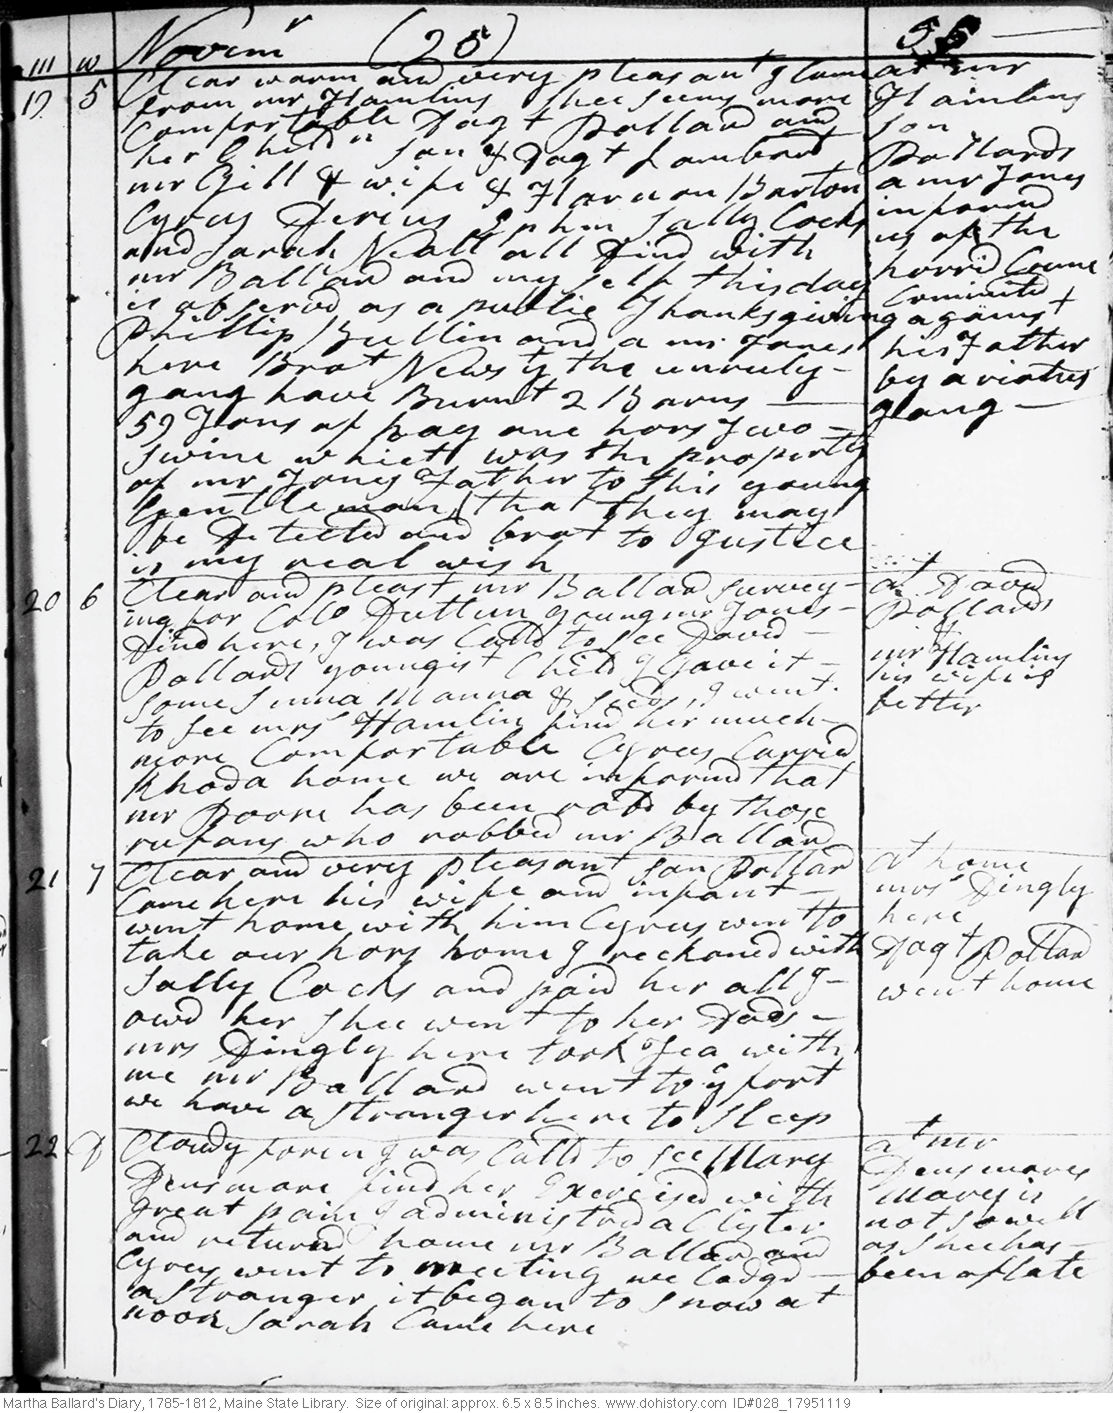 m w Novemr (25) 55
19 5 Clear warm and very pleasant I Came
from mr Hamlins Shee seems more
Comfortable Dagt Pollard and
her Child n Son & Dagt Lambard
mr Gill & wife & Harnon Barton
Cyrus Ephm Sally Cocks
and Sarah Neall all Dind with
mr Ballard and my self this day
is observd as a publie Thanksgiving
Phillip Bullin and a mr Jones
here Brot News yt the unruly
gang have Burnt 2 Barns
59 Tons of hay one hors Two
swine which was the property
of mr Jones Father to this young
Gentleman, that they may
be Ditected and brot to Justice
is my real wish
at mr
Hamlins
son
Pollards
a mr Jones
informd
us of the
horrid Crime
Commited
against
his Father
by a viotus
gang
20 6 Clear and pleast mr Ballard survey-
ing for Colo Dutton young mr Jones
Dind here, I was Calld to see David
Pollards youngist Child I Gave it
some Sinna Manna & seeds, I went
to see mrs Hamlin find her much
more Comfortable Cyrus Carried
Rhoda home we are informd that
mr Poore has been robd by those
rufans who robbed mr Ballard
at David
Pollards
&
mr Hamlins
his wife is
better
21 7 Clear and very pleasant son Pollard
Came here his wife and infant
went home with him Cyrus went to
take our hors home I reckoned with
Sally Cocks and paid her all I
owd her Shee went to her Dads
mrs Dingly here took Tea with
me mr Ballard went to ye fort
we have a stranger here to sleep
at home
mrs Dingly
here
Dagt Pollard
went home
22 D Cloudy foren I was Calld to see Mary
Densmore find her Exercised with
great pain I administred a Clister
and returnd home mr Ballard and
Cyrus went to meeting we Lodgd
a stranger it began to snow at
noon Sarah Came here
at mr
Densmores
Mary is
not so well
as Shee has
been of late
Martha Ballard's Diary, 1785-1812, Maine State Library. Size of original: approx. 6.5 x 8.5 inches. www.dohistory.com ID#028_17951119